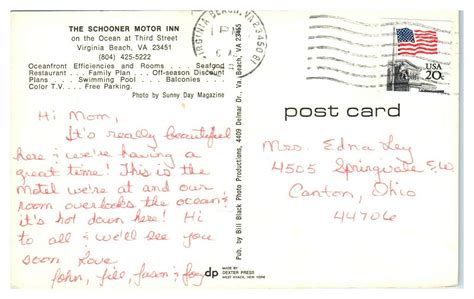 THE SCHOONER MOTOR INN
on the Ocean at Third Street
Virginia Beach, VA 23451
(804) 425-5222
Oceanfront Efficiencies and Rooms . . . Seafood
Restaurant . . . Family Plan . . . Off-season Discount
Plans . . . Swimming Pool . . . Balconies . . .
Color T.V. . . . Free Parking.
Photo by Sunny Day Magazine
Hi Mom,
It's really beautiful
here & we're having a
great time! This is the
motel we're at and our
room overlooks the ocean &
it's hot down here! Hi
to all & we'll see you
soon Love
John, Jill, Jason & Joy
Pub. by Bill Black Photo Productions, 4409 Delmar Dr., Va. Beach, VA 23455
MADE BY
DEXTER PRESS
WEST NYACK, NEW YORK
dp
VIRGINIA BEACH, VA
PM
USA
20c
post card
Mrs. Edna Ley
4505 Springvale S.W.
Canton, Ohio
44706